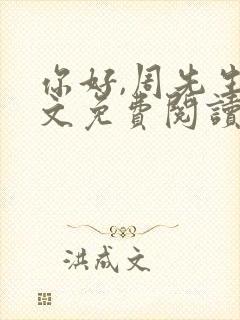 你好,周先生
文免費閱讀
洪成文